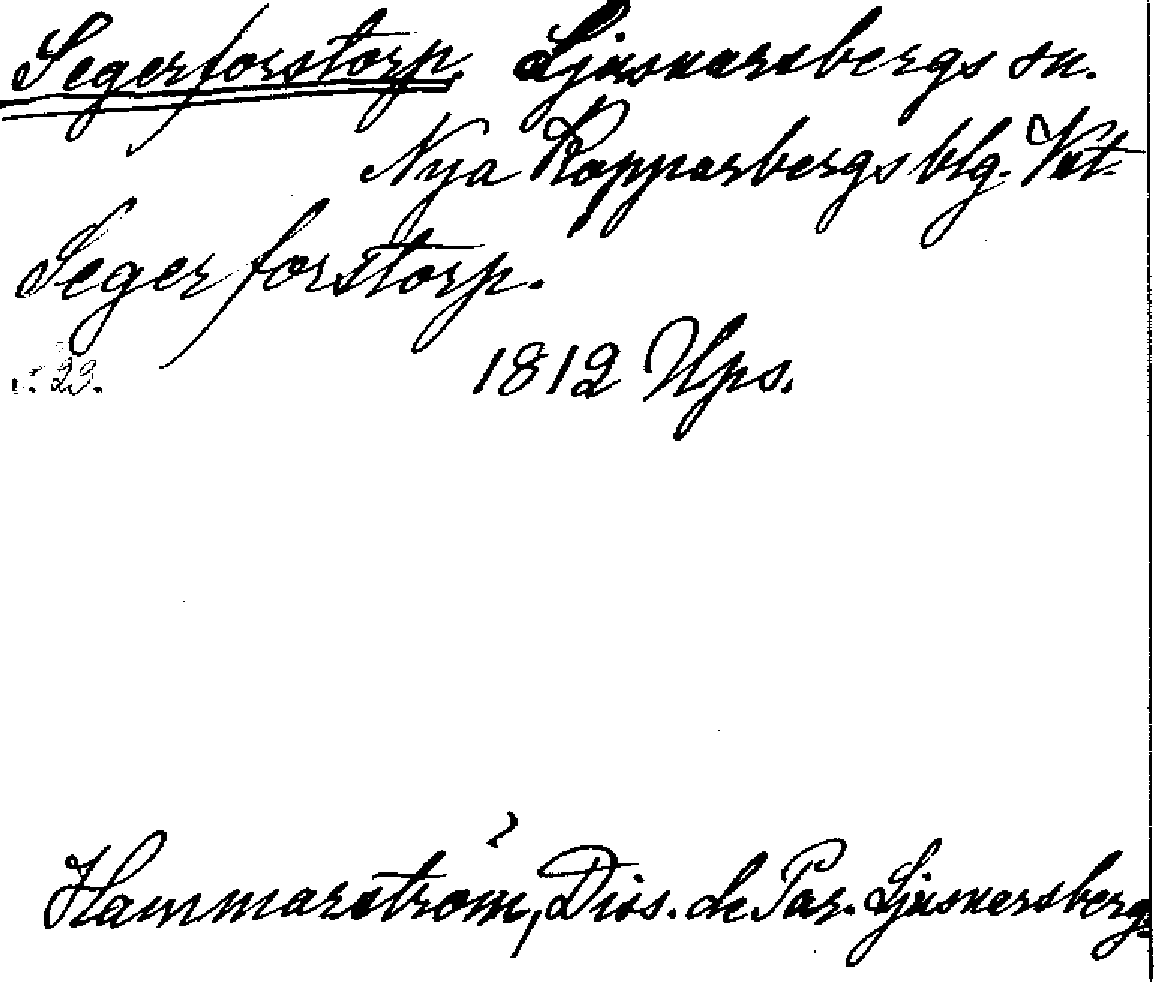 Segerforstorp. Ljusnarsbergs sn.
Nya Kopparbergs blg. Väst-
Segerforstorp.
s. 23.
1812 Ups.
Hammarström, Diss. de Par. Ljusnarsberg.